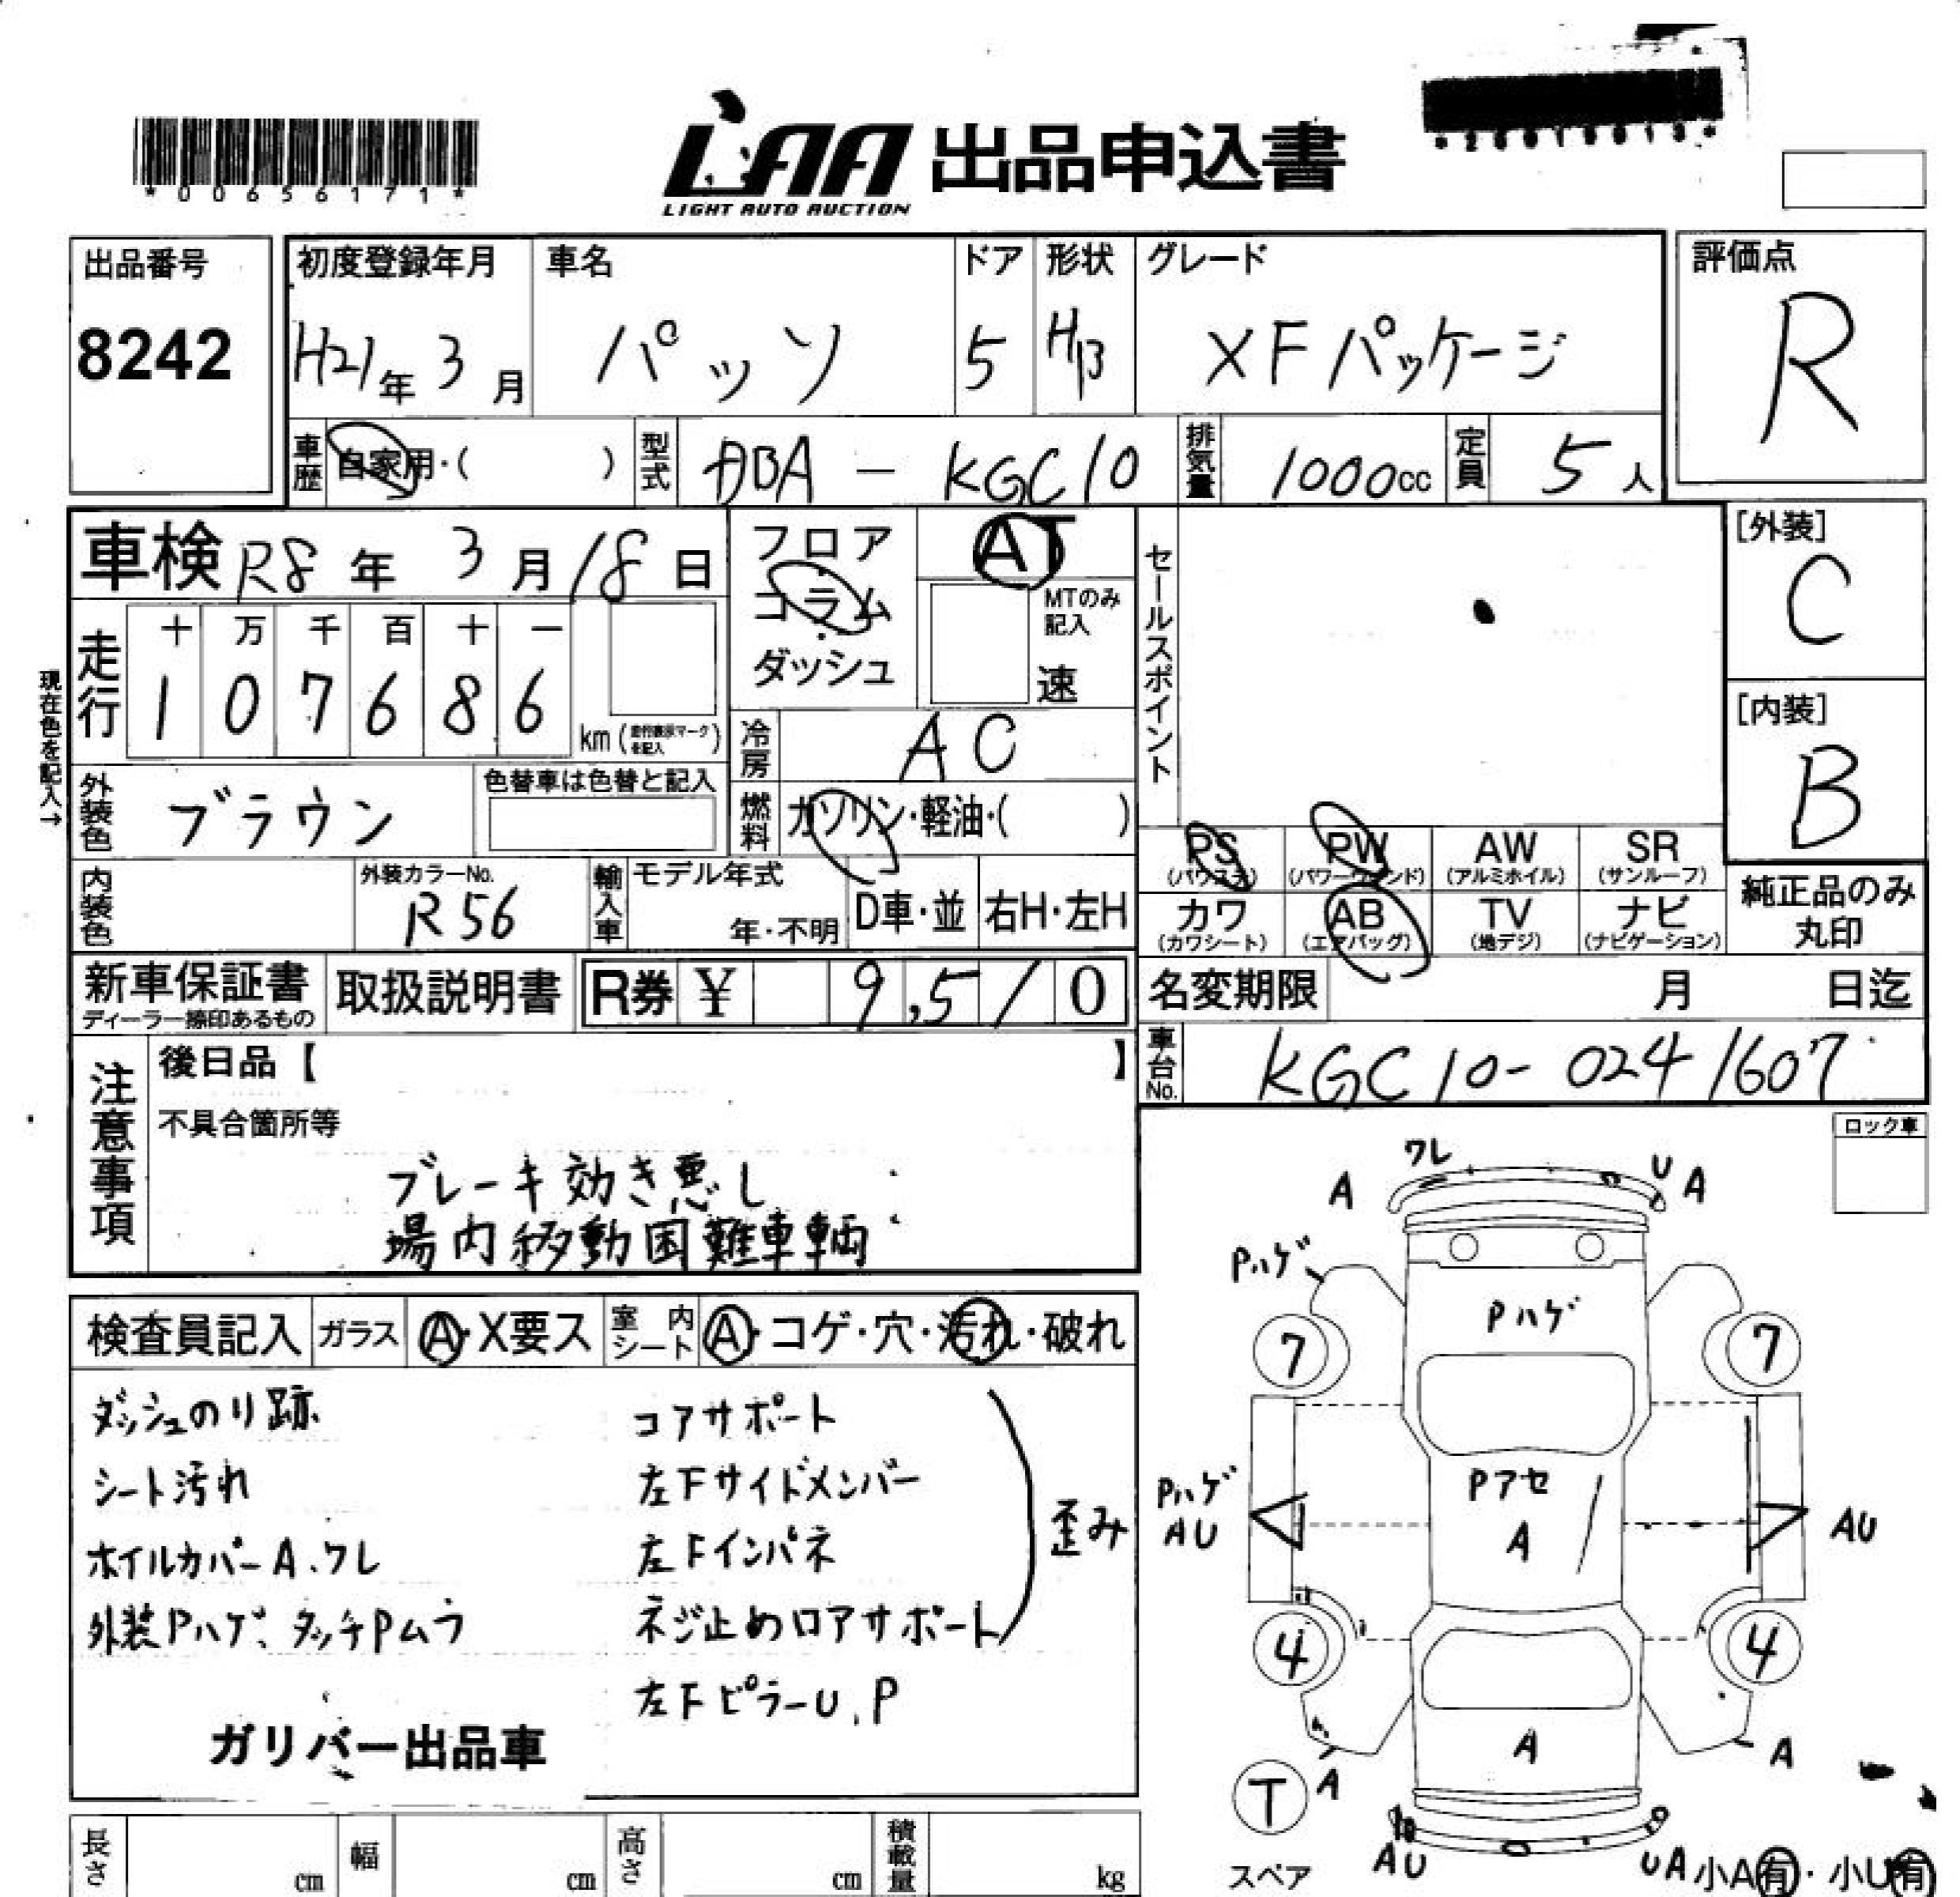 *00656171*
LAA 出品申込書
LIGHT AUTO AUCTION
出品番号
8242
初度登録年月
H21年 3月
車名
パッソ
ドア
5
形状
H/B
グレード
XFパッケージ
評価点
R
車歴
自家用・( )
型式
DBA - KGC10
排気量
1000cc
定員
5人
車検 R8年 3月 18日
フロア・コラム・ダッシュ
AT
MTのみ記入
速
セールスポイント
[外装]
C
[内装]
B
現在色を記入→
走行
十 万 千 百 十 一
1 0 7 6 8 6
km(走行表示マークを記入)
冷房
AC
外装色
ブラウン
色替車は色替と記入
燃料
ガソリン・軽油・( )
内装色
外装カラーNo.
R56
輸入車
モデル年式
年・不明
D車・並
右H・左H
PS
(パワステ)
PW
(パワーウィンド)
AW
(アルミホイル)
SR
(サンルーフ)
カワ
(カワシート)
AB
(エアバッグ)
TV
(地デジ)
ナビ
(ナビゲーション)
純正品のみ
丸印
新車保証書
ディーラー捺印あるもの
取扱説明書
R券 ¥ 9,510
名変期限 月 日迄
車台No.
KGC10-0241607
注意事項
後日品【 】
不具合箇所等
ブレーキ効き悪し
場内移動困難車輌
ロック車
検査員記入
ガラス
A・X要ス
室内シート
A・コゲ・穴・汚れ・破れ
ダッシュのり跡
シート汚れ
ホイルカバーA、ワレ
外装Pハゲ、タッチPムラ
ガリバー出品車
コアサポート
左Fサイドメンバー
左Fインパネ
ネジ止めロアサポート
歪み
左FピラーU、P
A
ワレ
U A
Pハゲ
Pハゲ
7
7
Pハゲ
AU
Pアセ
A
AU
4
4
A
A
A
T
スペア
AU
UA
小A有・小U有
長さ cm
幅 cm
高さ cm
積載量 kg